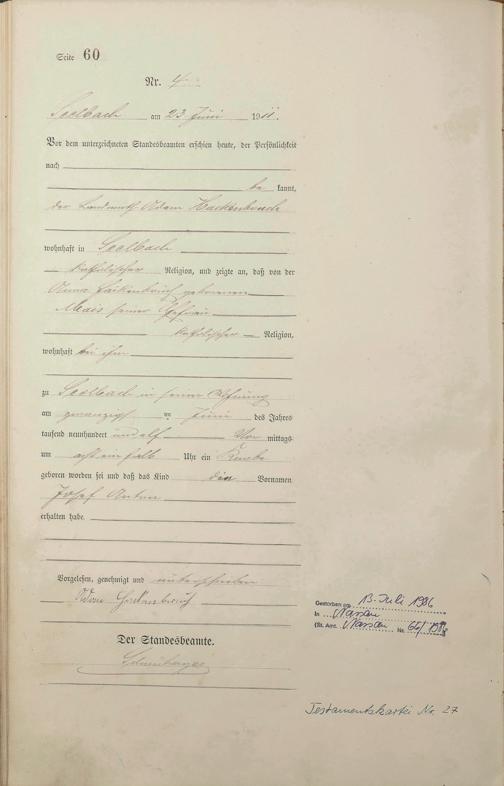 Seite 60
Nr. 4
Seelbach am 23 Juni 1911.
Vor dem unterzeichneten Standesbeamten erschien heute, der Persönlichkeit
nach
be kannt,
der Landwirth Adam Hackenbruch
wohnhaft in Seelbach
katholischer Religion, und zeigte an, daß von der
Anna Hackenbruch geborenen
Meais seiner Ehefrau
katholischer Religion,
wohnhaft bei ihm
zu Seelbach in seiner Wohnung
am zwanzigsten Juni des Jahres
tausend neunhundert und elf Vor mittags
um acht ein halb Uhr ein Knabe
geboren worden sei und daß das Kind die Vornamen
Josef Anton
erhalten habe.
Vorgelesen, genehmigt und unterschrieben
Adam Hackenbruch
Der Standesbeamte.
Gestorben am 13. Juli 1986
in Nassau
(St. Amt. Nassau Nr. 66/1986
Testamentskartei Nr. 27